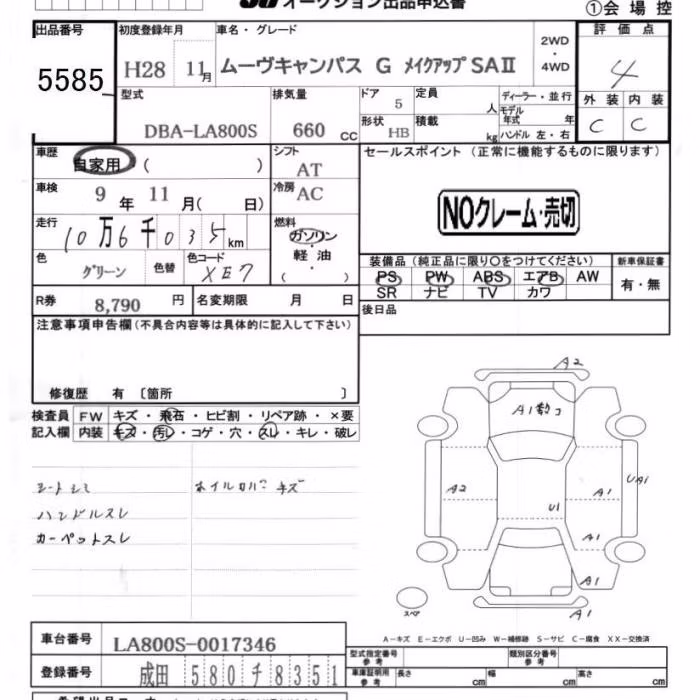 オークション出品申込書
①会場控
出品番号
5585
初度登録年月
H28 11月
車名・グレード
ムーヴキャンバス G メイクアップSAⅡ
2WD
・
4WD
評価点
4
外装 内装
C C
型式
DBA-LA800S
排気量
660 cc
ドア
5
定員
人
ディーラー・並行
モデル
年式 年
形状
HB
積載
kg
ハンドル 左・右
車歴
自家用 ( )
シフト
AT
セールスポイント (正常に機能するものに限ります)
NOクレーム・売切
車検
9 年 11 月( 日)
冷房
AC
走行
10万6千035km
燃料
ガソリン
・
軽油
・
( )
色
グリーン
色替
色コード
XE7
装備品 (純正品に限り○をつけてください)
新車保証書
PS PW ABS エアB AW
SR ナビ TV カワ
有・無
R券
8,790 円
名変期限 月 日
後日品
注意事項申告欄(不具合内容等は具体的に記入して下さい)
修復歴 有 〔箇所 〕
検査員
記入欄
FW キズ・飛石・ヒビ割・リペア跡・×要
内装 キズ・汚レ・コゲ・穴・スレ・キレ・破レ
シートシミ
ハンドルスレ
カーペットスレ
A2
A2
A1
U1
UA1
A1
A1
A1
スペア
A−キズ E−エクボ U−凹み W−補修跡 S−サビ C−腐食 XX−交換済
車台番号
LA800S-0017346
登録番号
成田 580 チ 8351
型式指定番号
参考
類別区分番号
参考
車庫証明用
参考
長さ cm
幅 cm
高さ cm